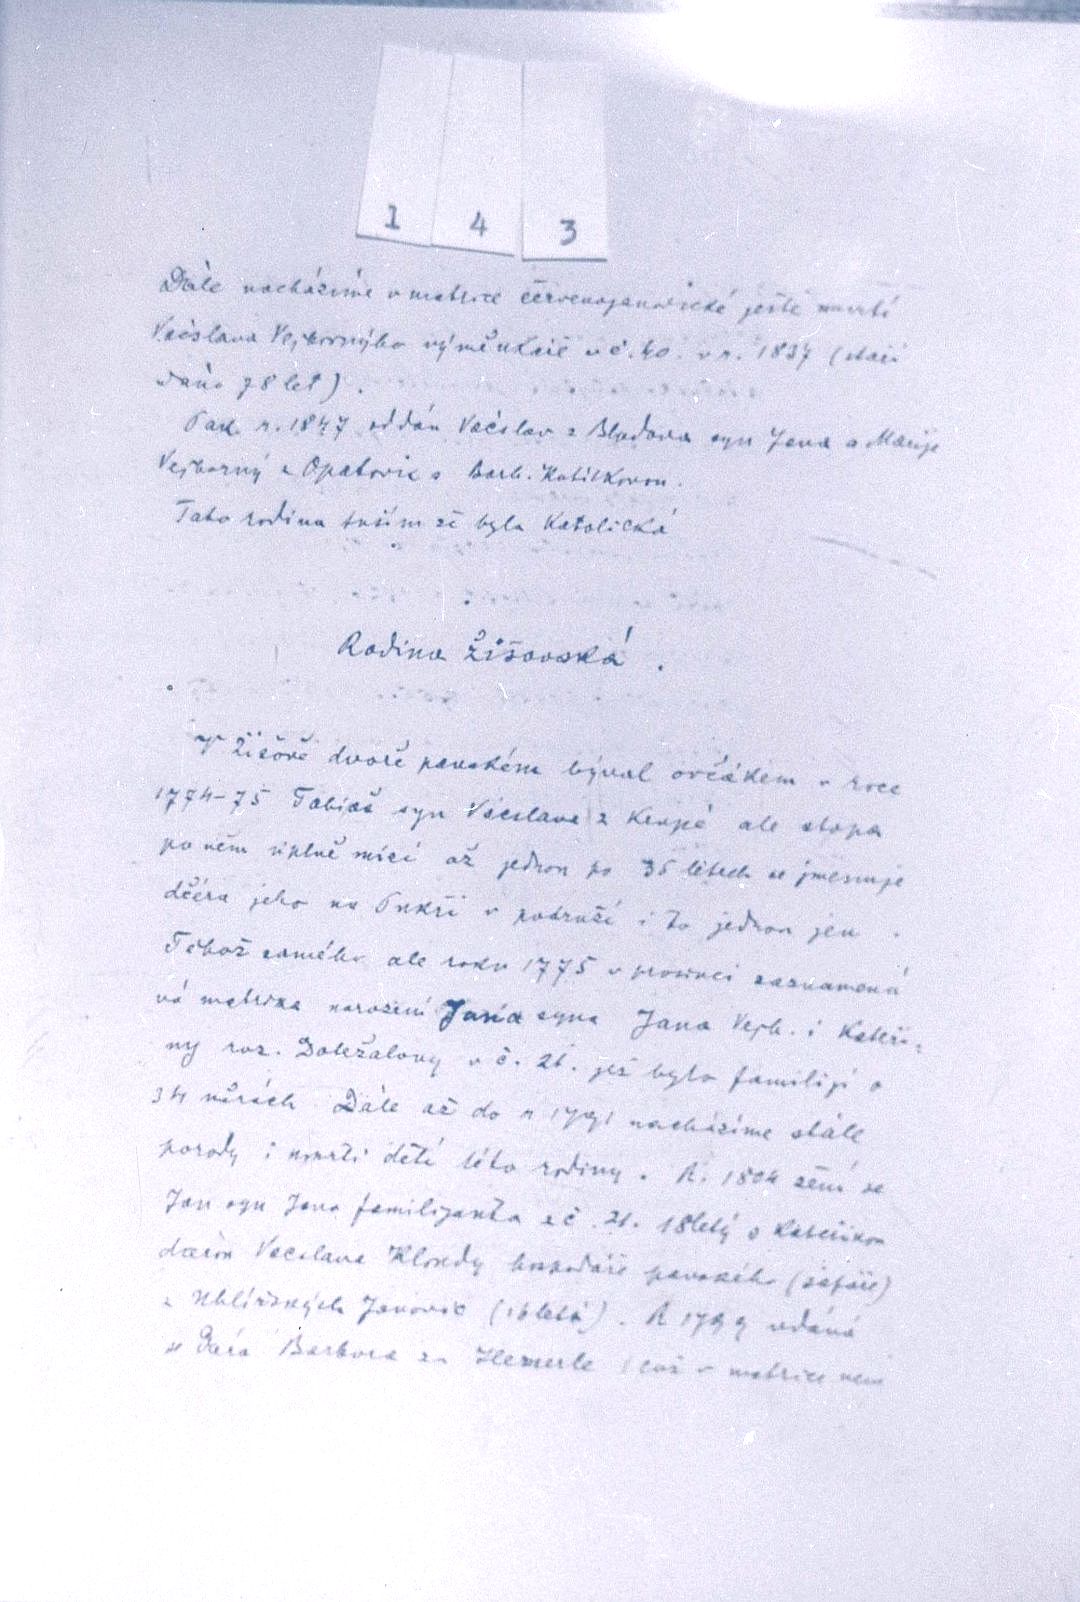 1 4 3
Dále nacházíme v matrice červenojanovické ještě úmrtí
Václava Vejborného výměnkáře v č. 40. v r. 1837 (stáří
udáno 78 let).
Pak r. 1847 oddán Václav z Bludova syn Jana a Marije
Vejborný z Opatovic s Barb. Kubíkovou.
Tato rodina tuším že byla Katolická
Rodina Žišovská.
V Žišově dvoře panském býval ovčákem v roce
1774-75 Tobiáš syn Václava z ale stopa
po něm úplně mizí až jednou po 35 létech se jmenuje
dcéra jeho na v podruží i to jednou jen.
Téhož samého ale roku 1775 v prosinci zaznamená
vá matrika narození Jana syna Jana Vejb. i Kateři-
ny roz. Doležalovy v č. 21. jež bylo familijí o
34 měrách Dále až do r 1791 nacházíme stále
porody i úmrtí dětí této rodiny. R. 1804 žení se
Jan syn Jana familijanta z č. 21. 18letý s Kateřinou
dcerou Václava Kloudy hospodáře panského (šafáře)
z Uhlířských Janovic (16letá). R 1799 udána
je Barbora za Hemerle (což v matrice není